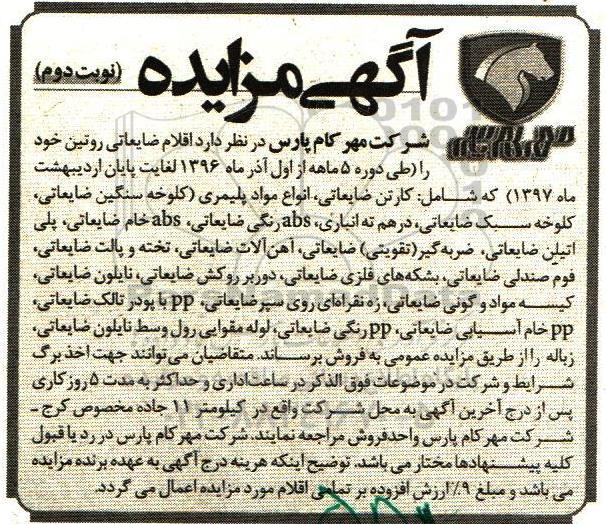 آگهی مزایده (نوبت دوم)
شرکت مهرکام پارس در نظر دارد اقلام ضایعاتی روتین خود
را (طی دوره ۵ ماهه از اول آذر ماه ۱۳۹۶ لغایت پایان اردیبهشت
ماه ۱۳۹۷) که شامل: کارتن ضایعاتی، انواع مواد پلیمری (کلوخه سنگین ضایعاتی،
کلوخه سبک ضایعاتی، درهم ته انباری، abs رنگی ضایعاتی، abs خام ضایعاتی، پلی
اتیلن ضایعاتی، ضربه گیر(تقویتی) ضایعاتی، آهن آلات ضایعاتی، تخته و پالت ضایعاتی،
فوم صندلی ضایعاتی، بشکه‌های فلزی ضایعاتی، دوربر روکش ضایعاتی، نایلون ضایعاتی،
کیسه مواد و گونی ضایعاتی، زه نقره‌ای روی سپر ضایعاتی، pp با پودر تالک ضایعاتی،
pp خام آسیابی ضایعاتی، pp رنگی ضایعاتی، لوله مقوایی رول وسط نایلون ضایعاتی،
زباله را از طریق مزایده عمومی به فروش برساند. متقاضیان می‌توانند جهت اخذ برگ
شرایط و شرکت در موضوعات فوق الذکر در ساعات اداری و حداکثر به مدت ۵ روز کاری
پس از درج آخرین آگهی به محل شرکت واقع در کیلومتر ۱۱ جاده مخصوص کرج ـ
شرکت مهرکام پارس واحد فروش مراجعه نمایند. شرکت مهرکام پارس در رد یا قبول
کلیه پیشنهادها مختار می باشد. توضیح اینکه هزینه درج آگهی به عهده برنده مزایده
می باشد و مبلغ ۹٪ ارزش افزوده بر تمامی اقلام مورد مزایده اعمال می گردد.